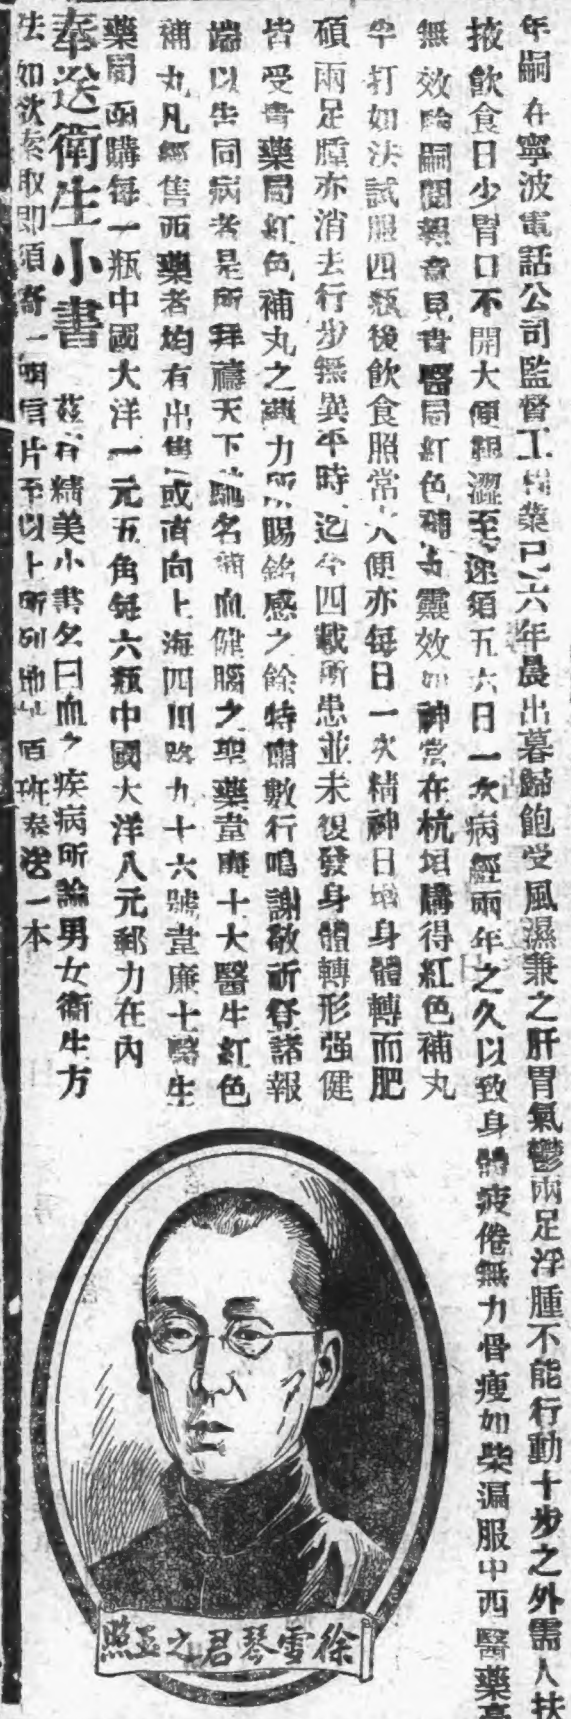 年嗣在寧波電話公司監督工程業已六年晨出暮歸飽受風濕兼之肝胃氣鬱兩足浮腫不能行動十步之外需人扶
掖飲食日少胃口不開大便艱澀至速須五六日一次病經兩年之久以致身體疲倦無力骨瘦如柴漏服中西醫藥毫
無效嗣閱報章見貴醫局紅色補丸靈效如神當在杭垣購得紅色補丸
打如法試服四瓶後飲食照常大便亦每日一次精神日增身體轉而肥
碩兩足腫亦消去行步無異平時迄今四載所患並未復發身體轉形强健
皆受貴藥局紅色補丸之藥力所賜銘感之餘特肅數行鳴謝敬祈登諸報
端以告同病者是所拜禱天下馳名補血健腦之聖藥韋廉士大醫生紅色
補丸凡經售西藥者均有出售或直向上海四川路九十六號韋廉士醫生
藥局函購每一瓶中國大洋一元五角每六瓶中國大洋八元郵力在內
奉送衛生小書 茲有精美小書名曰血之疾病所論男女衛生方
法如欲索取即須寄一明信片至以上所列地址原班奉送一本
徐雪琴君之玉照